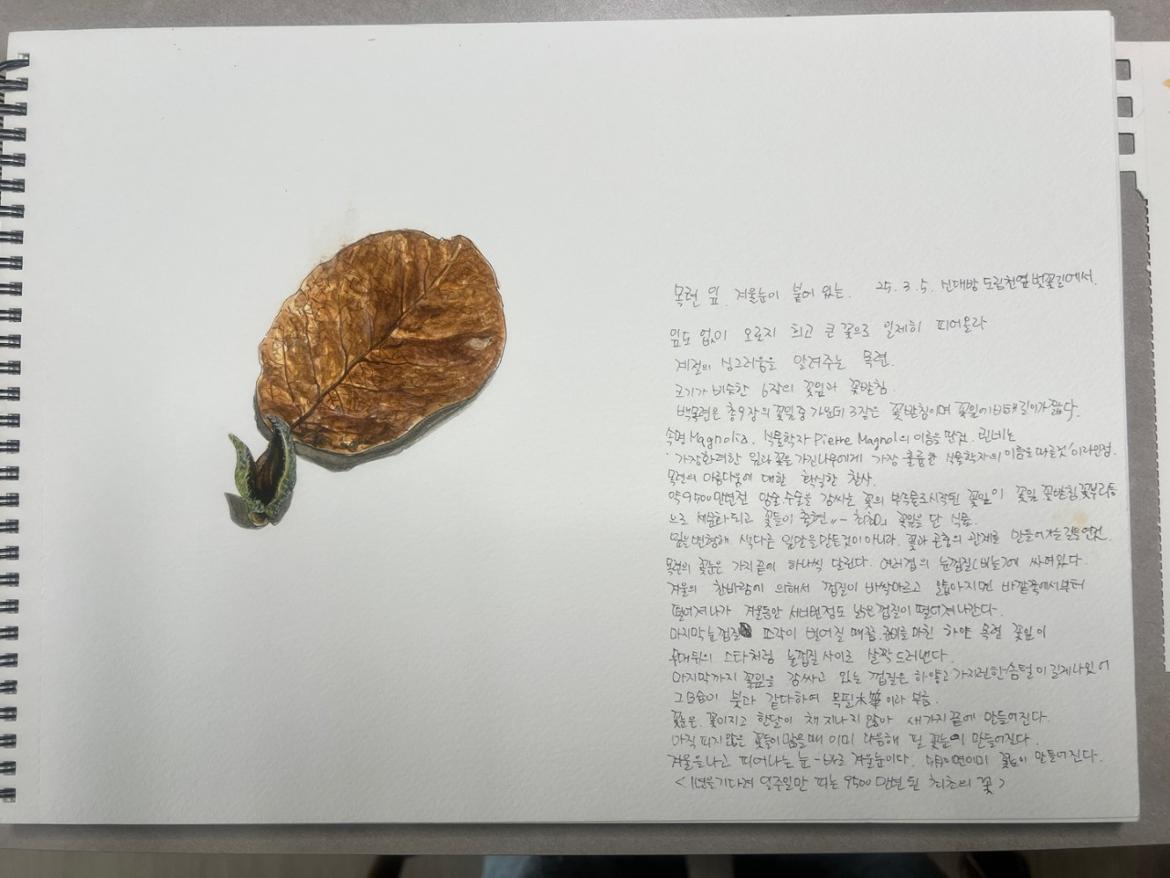 목련 잎. 겨울눈이 붙어 있는. 25. 3. 5. 신대방 도림천옆 벚꽃길에서.
잎도 없이 오로지 희고 큰 꽃으로 일제히 피어올라
계절의 싱그러움을 알려주는 목련.
크기가 비슷한 6장의 꽃잎과 꽃받침.
백목련은 총9장의 꽃잎중 가운데 3장은 꽃받침이며 꽃잎에 비해 길이가 짧다.
속명 Magnolia. 식물학자 Pierre Magnol의 이름을 딴것. 린네는
'가장화려한 잎과 꽃을 가진나무에게 가장 훌륭한 식물학자의 이름을 따른것'이라인정.
목련의 아름다움에 대한 핵심한 찬사.
약9500만년전 암술 수술을 감싸는 꽃의 부속물로시작된 꽃잎이 꽃잎 꽃받침 꽃부리등
으로 세분화되고 꽃들이 출현 - 최초 꽃잎을 단 식물.
잎을변형해 색다른 일만을만든것이아니라. 꽃과 곤충의 관계를 만들어가는길을연것.
목련의 꽃눈은 가지 끝에 하나씩 달린다. 여러겹의 눈껍질(비늘)에 싸여있다.
겨울의 찬바람에 의해서 껍질이 바싹마르고 얇아지면 바깥쪽에서부터
떨어져나가 겨울동안 서너번정도 낡은껍질이 떨어져나간다.
마지막눈껍질 조각이 벌어질 때쯤. 준비를 마친 하얀 목련 꽃잎이
무대뒤의 스타처럼 눈껍질사이로 살짝 드러낸다.
마지막까지 꽃잎을 감싸고 있는 껍질은 하얗고 가지런한 솜털이 길게나있어
그모양이 붓과 같다하여 목필木筆이라 부름.
꽃눈은 꽃이지고 한달이 채 지나지 않아 새가지 끝에 만들어진다.
아직 피지않은 꽃들이많을때 이미 다음해 필 꽃눈이 만들어진다.
겨울을나고 피어나는 눈-바로 겨울눈이다. 이미 꽃눈이 만들어진다.
<1년을기다려 일주일만 피는 9500만년된 최초의 꽃>